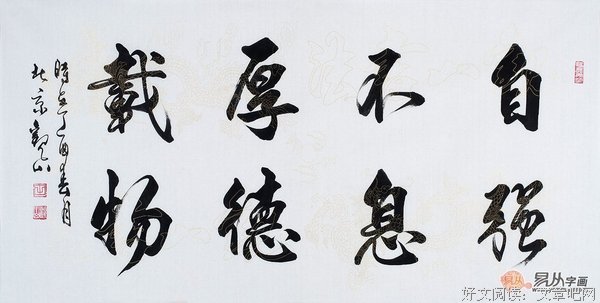 自强
不息
厚德
載物
時在丁酉春月
北京
易从字画
好文阅读：文章吧网